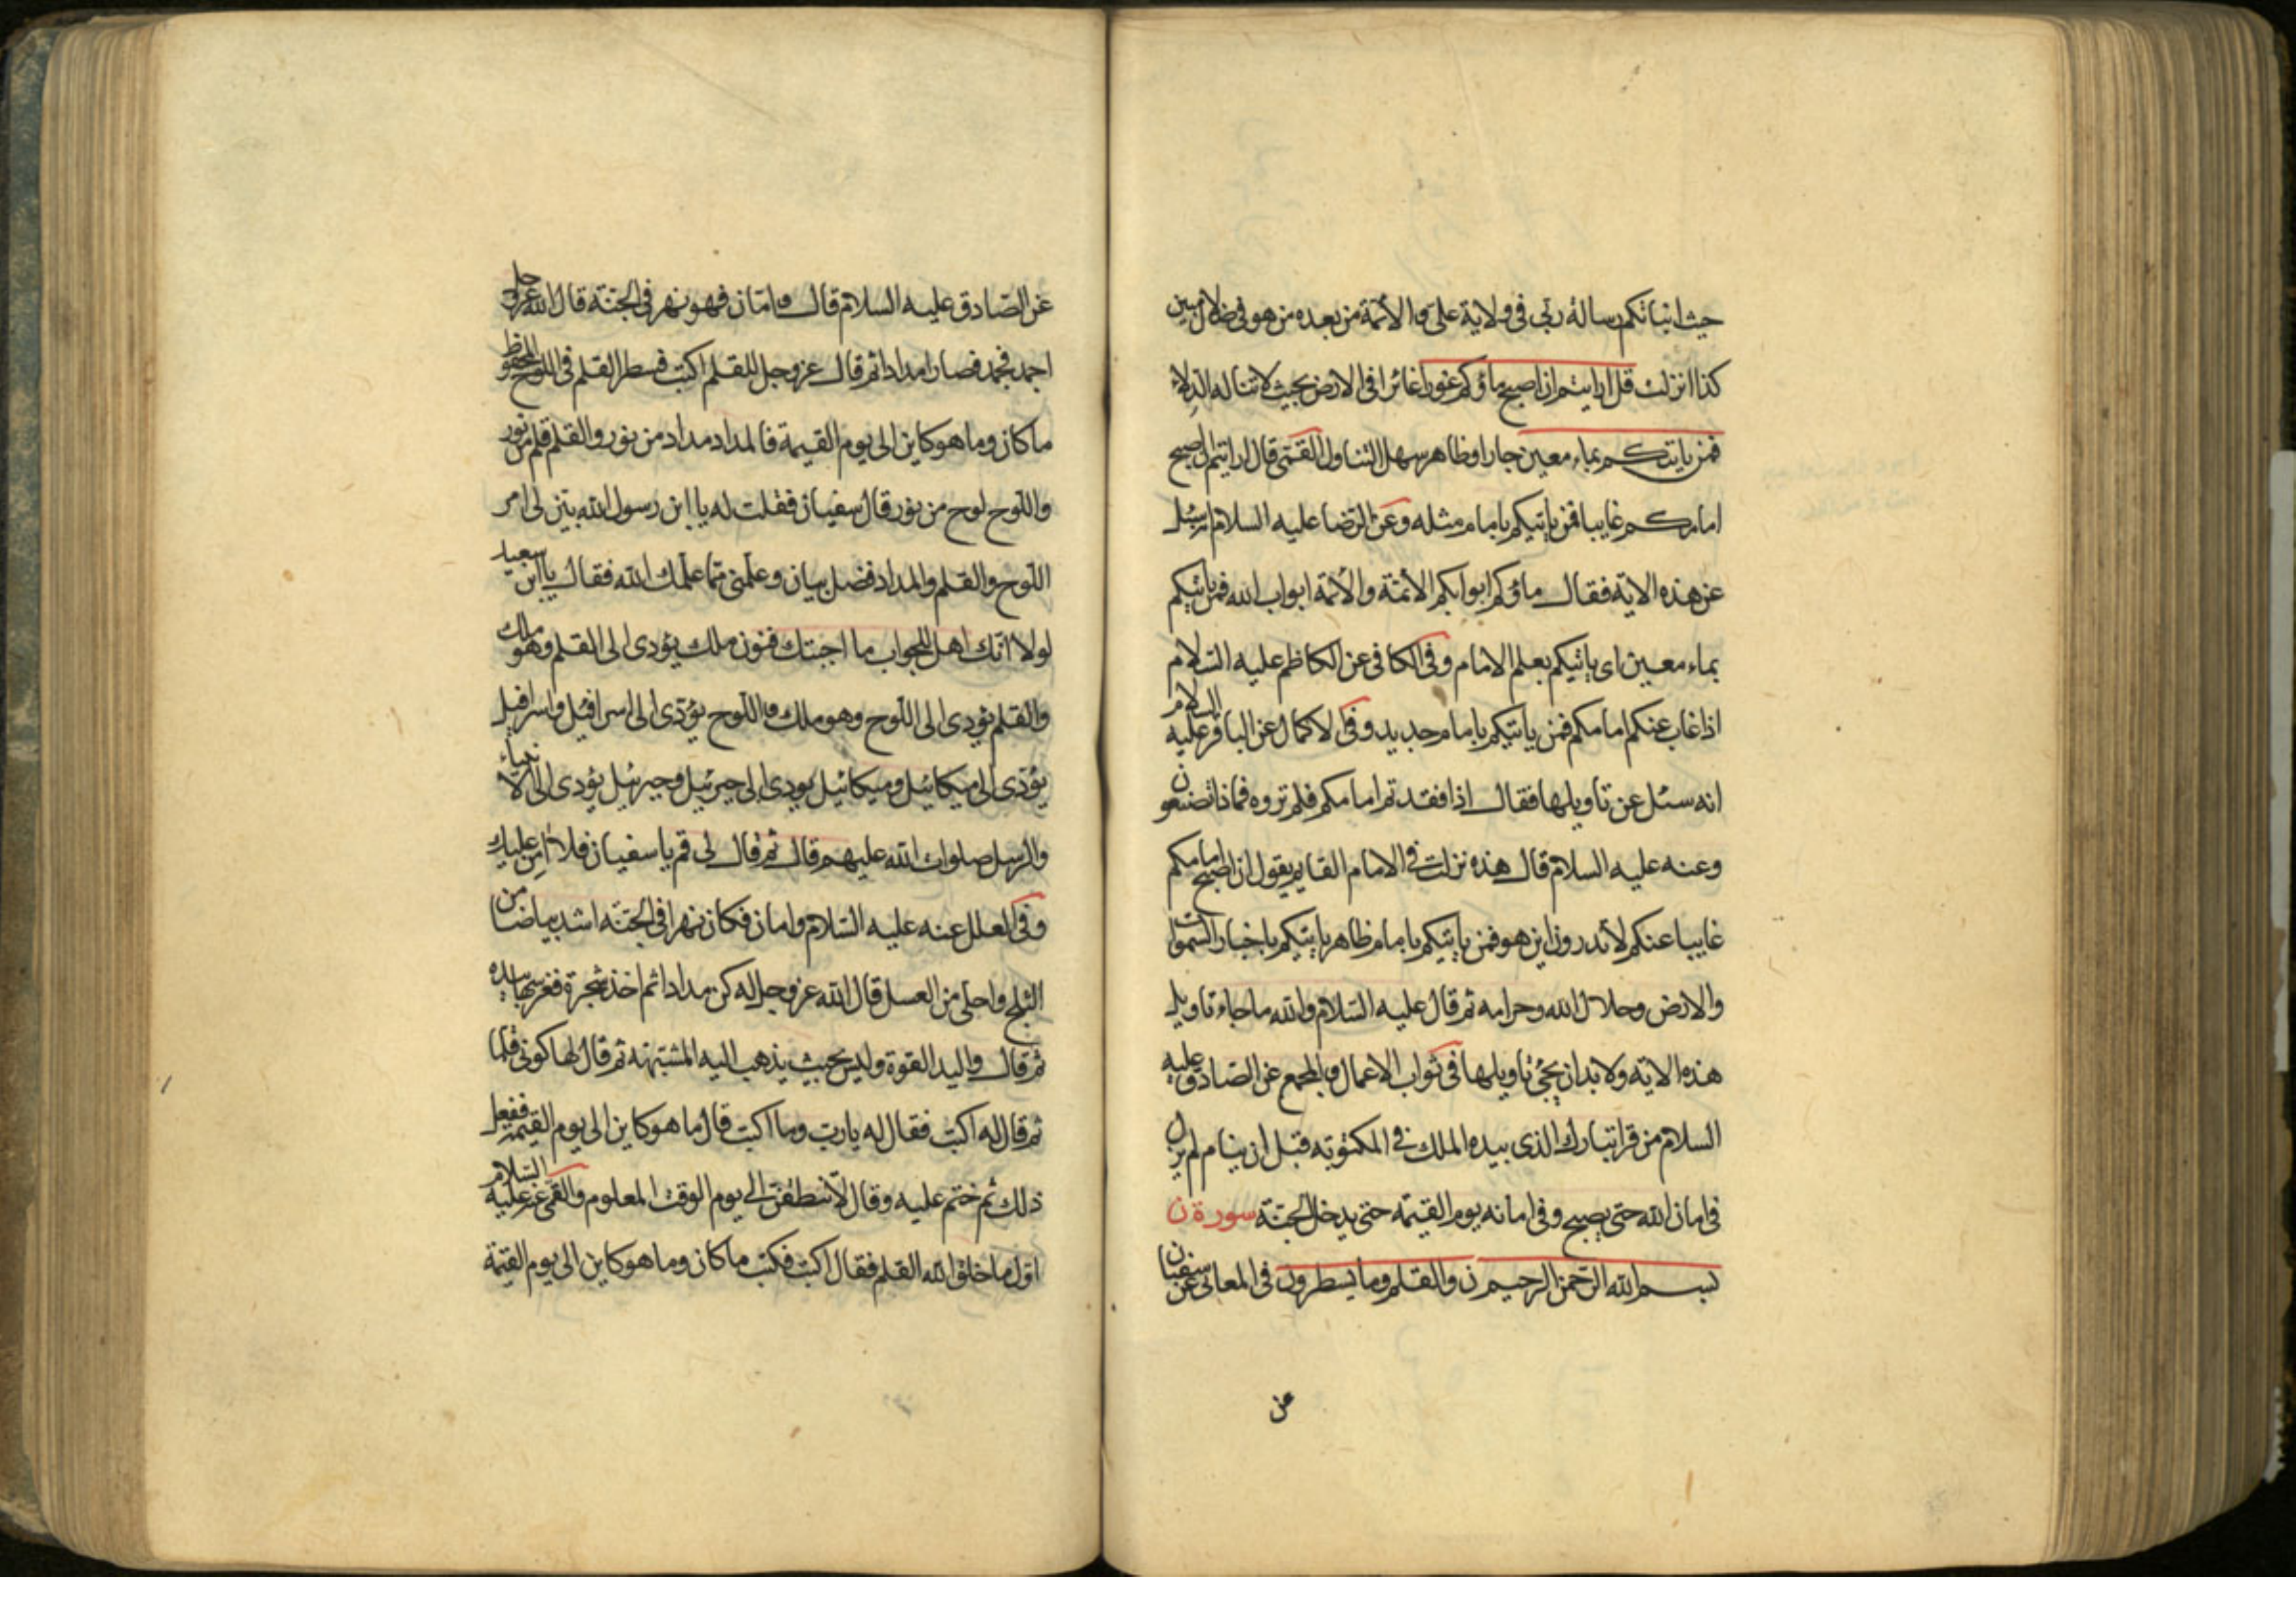 حيث انبأتكم رسالة ربّى فى ولاية علىّ والائمّة من بعده من هو فى ضلال مبين
كذا انزلت قل ارايتم ان اصبح ماؤكم غورا غائرا فى الارض بحيث لا تناله الدلاء
فمن ياتيكم بماء معين جار اوظاهر سهل التناول القمّى قال ارايتم ان اصبح
امامكم غايبا فمن يأتيكم بامام مثله وعن الرّضا عليه السلام سئل
عن هذه الاية فقال ماؤكم ابوابكم الأئمّة والأئمّة ابواب الله فمن يأتيكم
بماء معين اى يأتيكم بعلم الامام وفى الكافى عن الكاظم عليه السّلام
اذا غاب عنكم امامكم فمن ياتيكم بامام جديد وفى الاكمال عن الباقر عليه السلام
انه سئل عن تاويلها فقال اذا فقدتم امامكم فلم تروه فماذا تصنعون
وعنه عليه السلام قال هذه نزلت فى الامام القايم يقول ان اصبح امامكم
غايبا عنكم لا تدرون اين هو فمن يأتيكم بامام ظاهر يأتيكم باخبار السّموات
والارض وحلال الله وحرامه ثم قال عليه السّلام والله ما جاء تاويل
هذه الاية ولا بد ان يجئ تاويلها فى ثواب الاعمال والمجمع عن الصّادق عليه
السلام من قرا تبارك الذى بيده الملك فى المكتوبة قبل ان ينام لم يزل
فى امان الله حتى يصبح وفى امانه يوم القيمة حتى يدخل الجنّة سورة ن
بسم الله الرّحمن الرحيم ن والقلم وما يسطرون فى المعانى عن سفيان
عن
عن الصّادق عليه السلام قال وامّا ن فهو نهر فى الجنّة قال الله عز وجل
اجمد فجمد فصار مدادا ثم قال عز وجل للقلم اكتب فسطر القلم فى اللوح المحفوظ
ما كان وما هو كاين الى يوم القيمة فالمداد مداد من نور والقلم قلم من نور
واللّوح لوح من نور قال سفيان فقلت له يا ابن رسول الله بيّن لى امر
اللّوح والقلم والمداد فضل بيان وعلّمنى ممّا علّمك الله فقال يا ابن سعيد
لولا انّك اهل للجواب ما اجبتك فنون ملك يؤدى الى القلم وهو ملك
والقلم يؤدى الى اللّوح وهو ملك واللّوح يؤدّى الى اسرافيل واسرافيل
يؤدّى الى ميكائيل وميكائيل يودى الى جبرئيل وجبرئيل يؤدى الى الانبياء
والرسل صلوات الله عليهم قال ثم قال لى قم يا سفيان فلا امن عليك
وفى العلل عنه عليه السّلام وامان فكان نهرا فى الجنّة اشد بياضا من
الثلج واحلى من العسل قال الله عز وجل له كن مدادا ثم اخذ شجرة فغرسها بيده
ثم قال واليد القوة وليس بحيث يذهب اليه المشبّهة ثم قال لها كونى قلما
ثم قال له اكتب فقال له يا ربّ وما اكتب قال ما هو كاين الى يوم القيمة ففعل
ذلك ثم ختم عليه وقال لا تنطقنّ الى يوم الوقت المعلوم والقمى عنه عليه السّلام
اوّل ما خلق الله القلم فقال اكتب فكتب ما كان وما هو كاين الى يوم القيمة